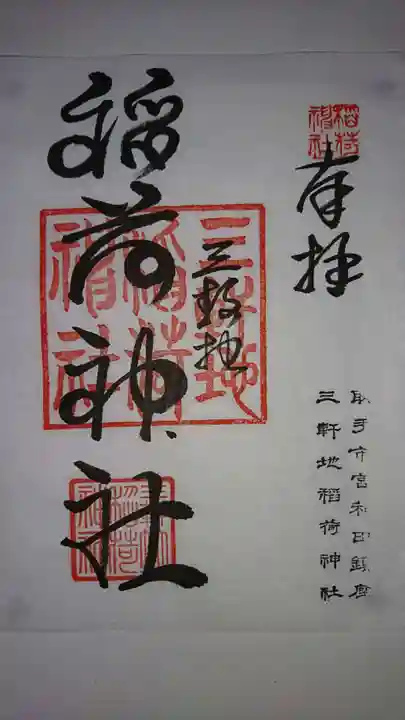 稲荷神社
奉拝
取手市宮和田鎮座
三軒地稲荷神社
三軒地
稲荷神社
三軒地
稲荷
神社